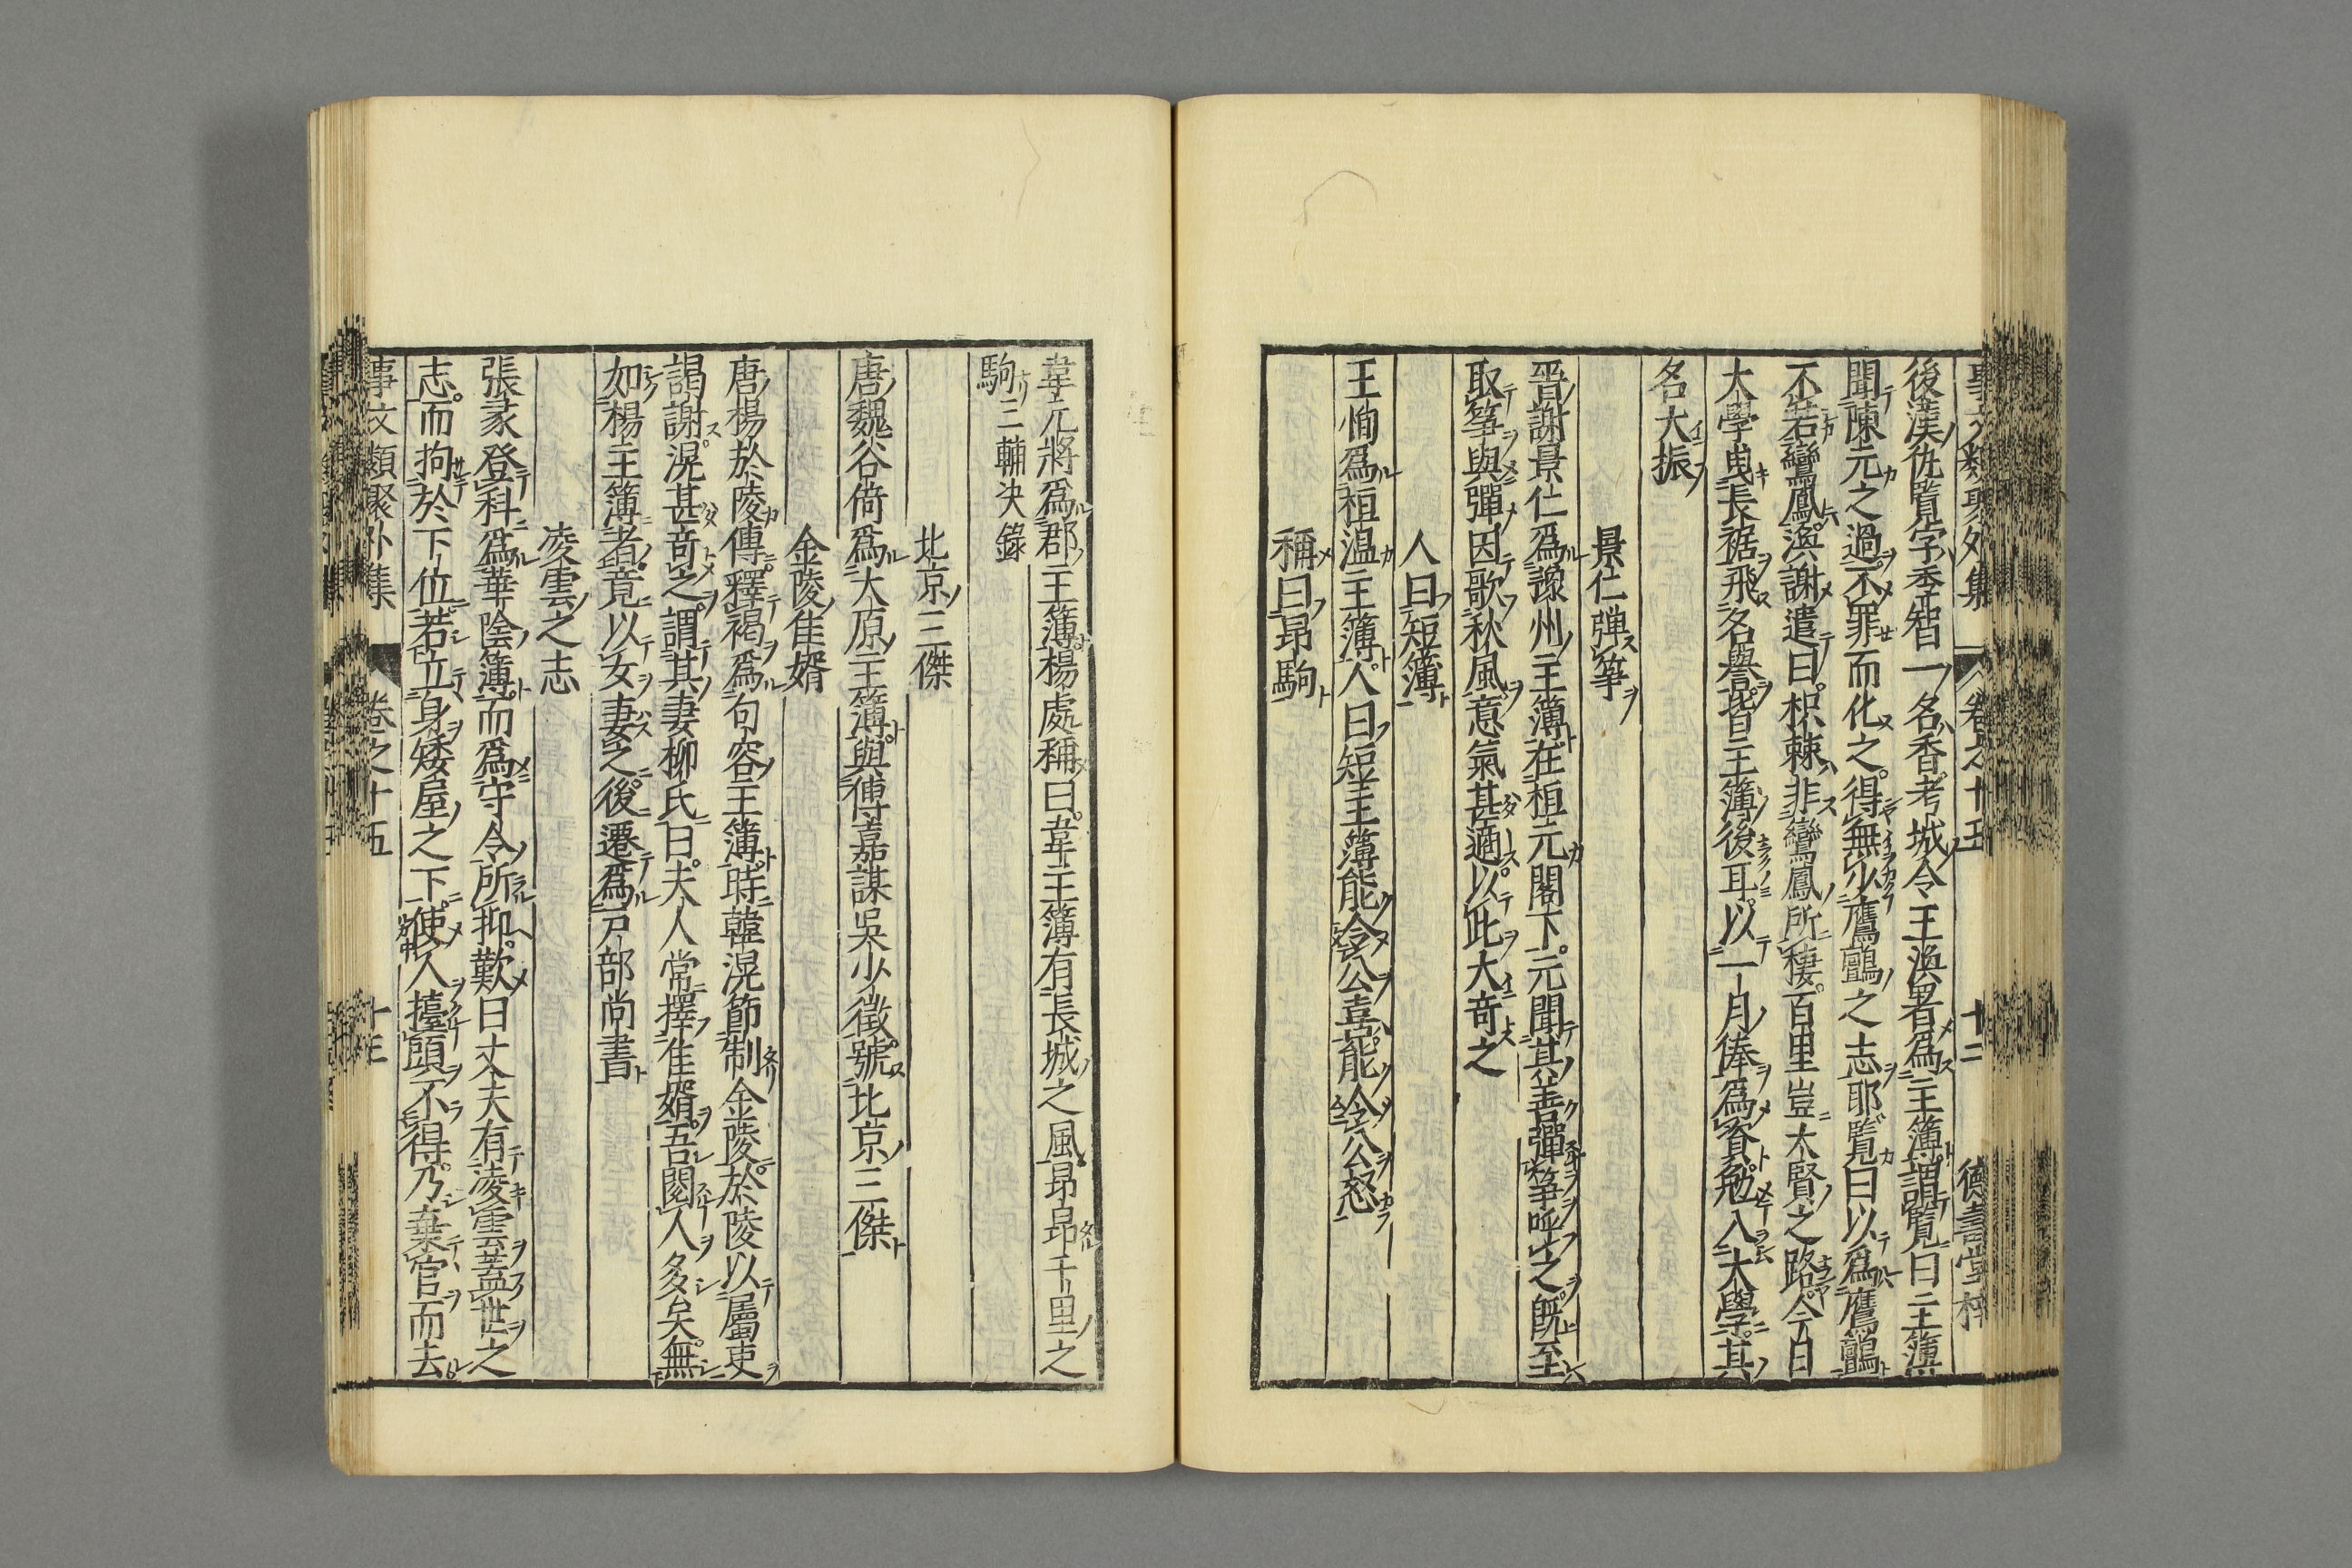 事文類聚外集 卷之十五 十二 德壽堂梓
後漢仇覽字季智一名香考城令王渙署爲主簿謂覽曰主簿
聞陳元之過不罪而化之得無少鷹鸇之志耶覽曰以爲鷹鸇
不若鸞鳳渙謝遣曰枳棘非鸞鳳所棲百里豈大賢之路今日
大學曳長裾飛名譽皆主簿後耳以一月俸爲資勉入大學其
名大振
景仁彈箏
晋謝景仁爲豫州主簿在桓元閣下元聞其善彈箏呼之既至
取箏與彈因歌秋風意氣甚適以此大奇之
人曰短簿
王恂爲桓温主簿人曰短主簿能令公喜能令公怒
稱曰昂駒
韋元將爲郡主簿楊處稱曰韋主簿有長城之風昴昴千里之
駒三輔决錄
北京三傑
唐魏谷倚爲大原主簿與傅嘉謀吳少微號北京三傑
金陵佳婿
唐楊於陵傳釋褐爲句容主簿時韓滉節制金陵於陵以屬吏
謁謝滉甚奇之謂其妻柳氏曰夫人常擇佳婿吾閱人多矣無
如楊主簿者竟以女妻之後遷爲戸部尚書
凌雲之志
張彖登科爲華陰簿而爲守令所抑歎曰丈夫有凌雲蓋世之
志而拘於下位若立身矮屋之下使人擡頭不得乃棄官而去
事文類聚外集 卷之十五 十三